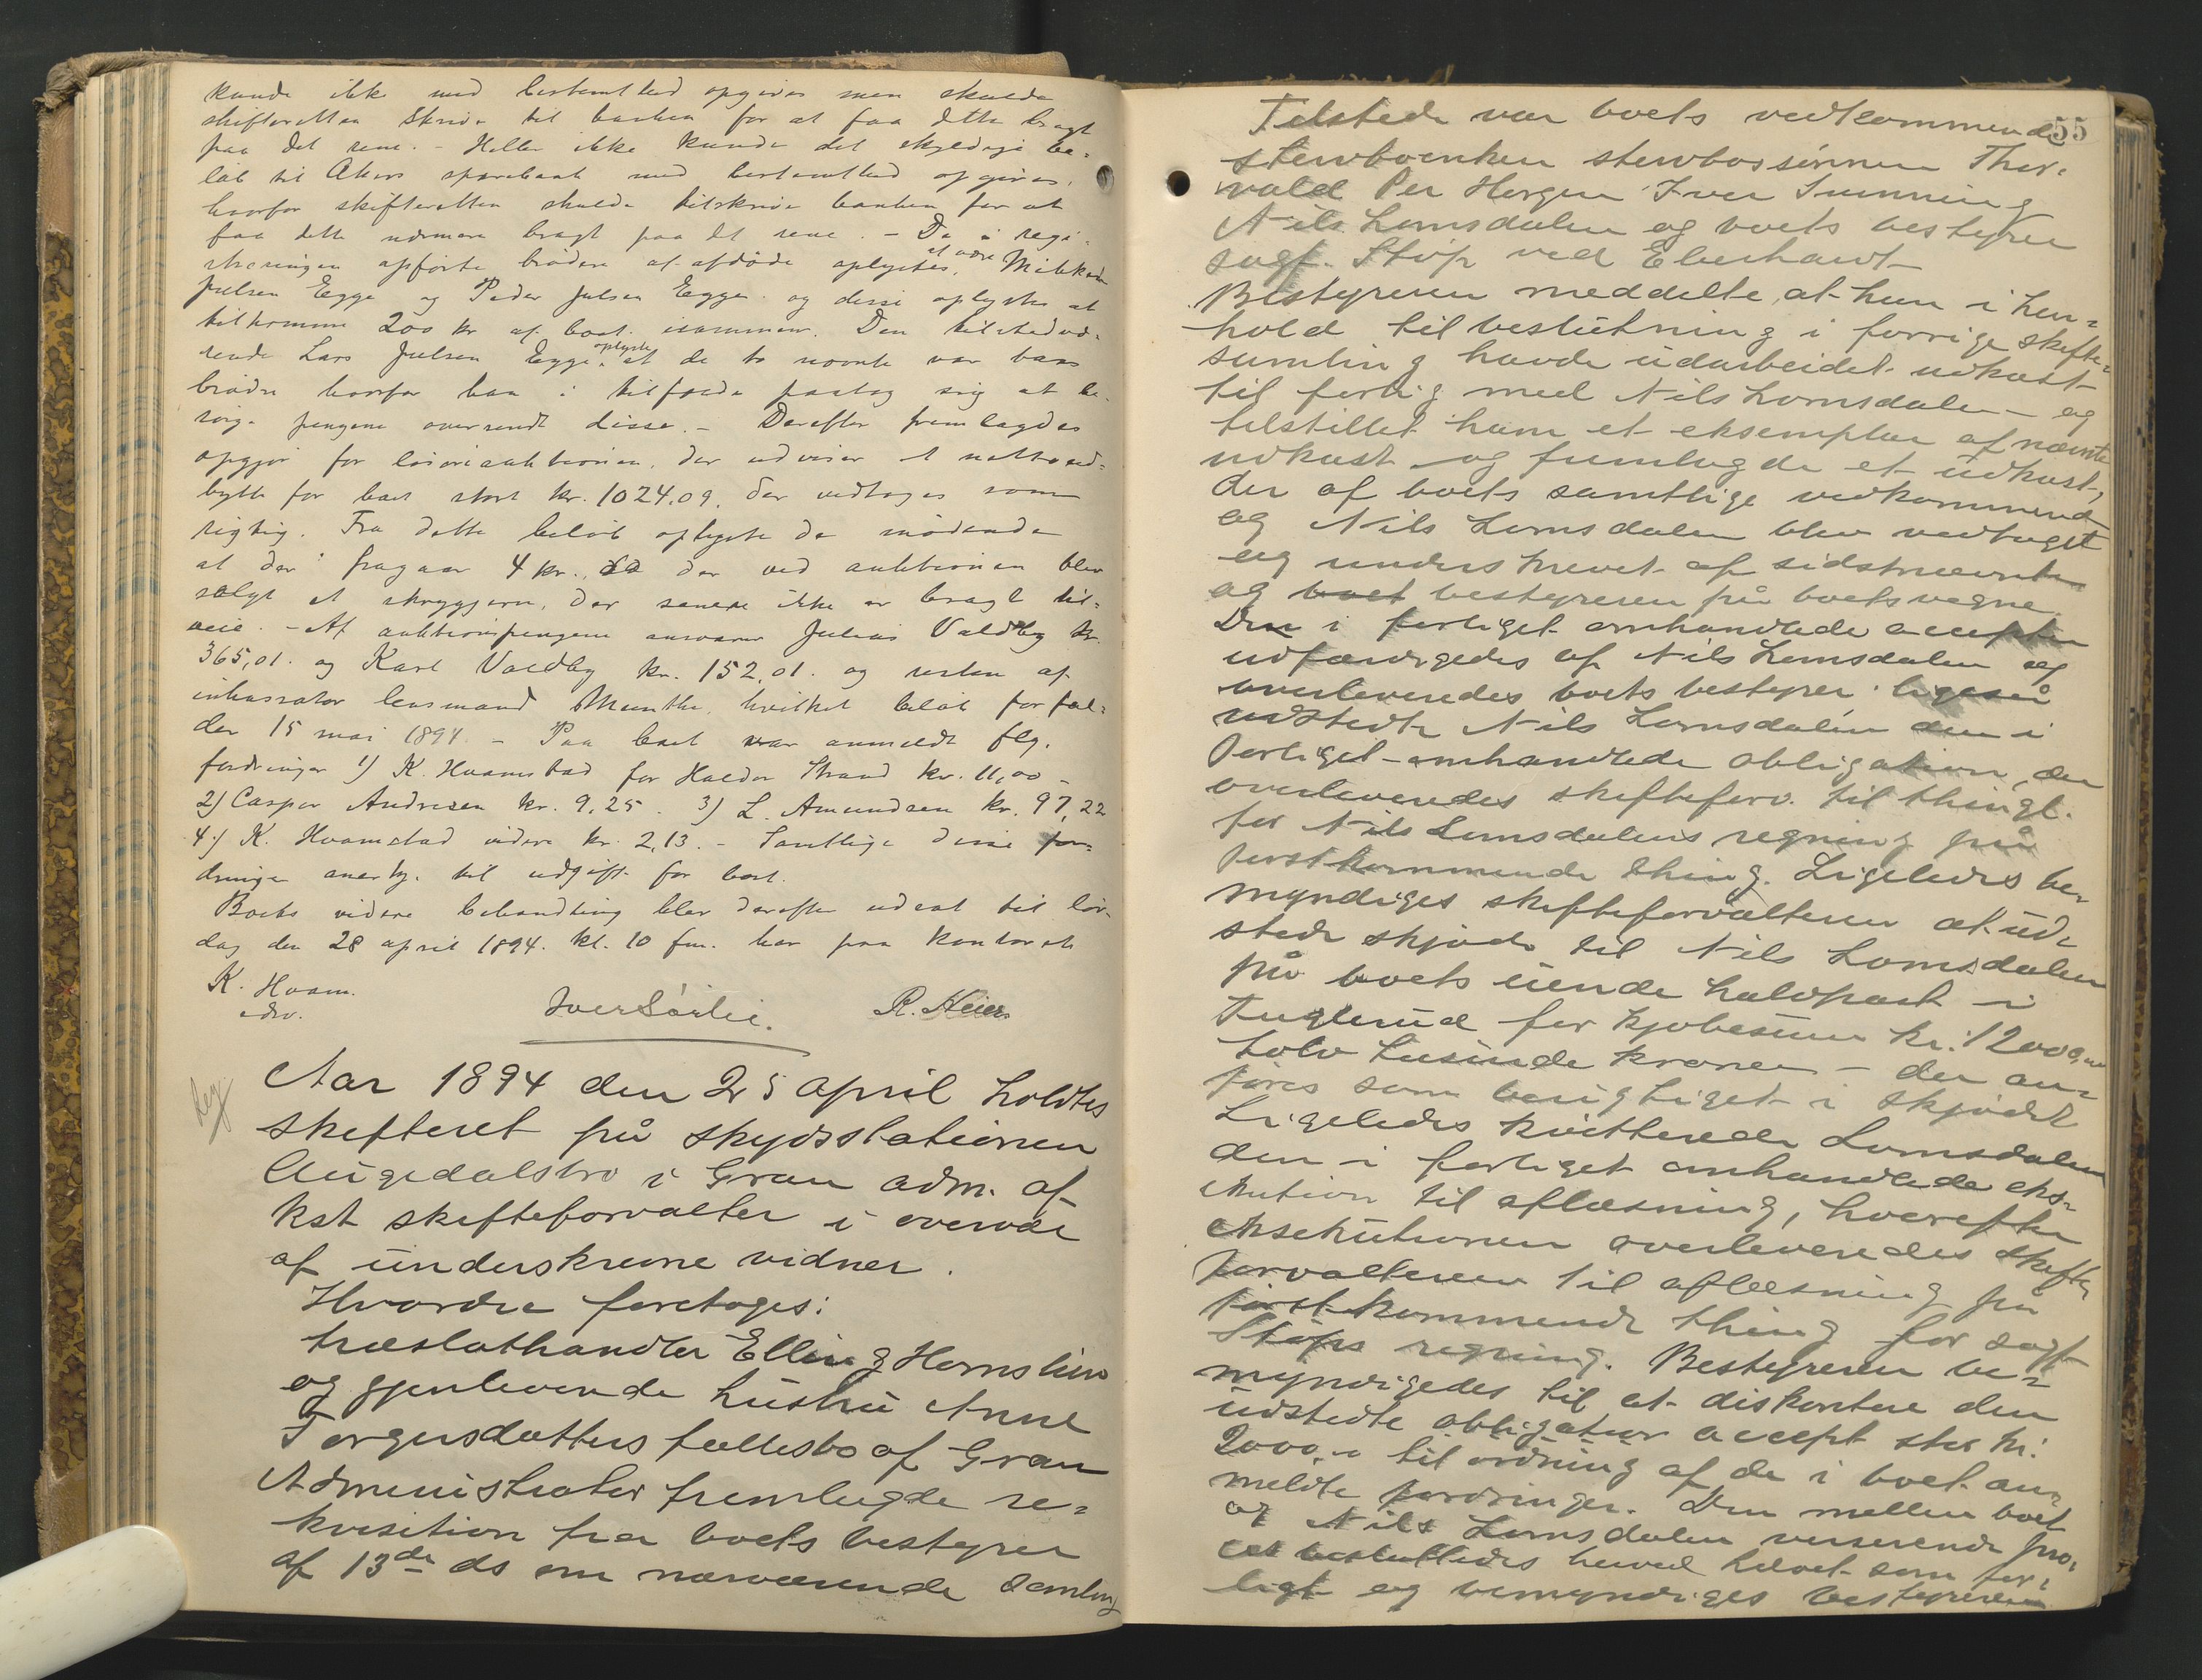 kunde ikke med bestemthed opgives men skulde
skifteretten skrive til banken for at faa dette bragt
paa det rene. - Heller ikke kunde det skyldige be=
løb til Akers sparebank med bestemthed opgives,
hvorfor skifteretten skulde tilskrive banken for at
faa dette nærmere bragt paa det rene. - De i regi-
streringen opførte brødre af afdøde oplystes at være
Julsen Egge og Peder Julsen Egge og disse oplystes at
tilkomme 200 kr af boet isammen. Den tilstedevæ=
rende Lars Julsen Egge oplyste at de to nævnte var hans
brødre hvorfor han i tilfælde paatog sig at be-
sørge pengene oversendt disse. - Derefter fremlagdes
opgjør for løsøreauktionen, der udviser et nettoud=
bytte for boet stort kr. 1024,09. der vedtoges som
rigtig. Fra dette beløb oplyste de mødende
at der fragaar 4 kr. der ved auktionen blev
solgt et , der senere ikke er bragt til=
veie. - Af auktionspengene ansvarer Julius Valdby kr.
365,01. og Karl Valdby kr. 152,01. og resten af
inkassator lensmand Munthe, hvilket beløb forfal=
der 15 mai 1894. - Paa boet var anmeldt flg.
fordringer 1) K. Hvamstad for Haldor Strand kr. 11,00 -
2) Casper Andresen kr. 9,25. 3) L. Amundsen kr. 97,22
4) K. Hvamstad videre kr. 2,13. - Samtlige disse for=
dringer anerkj. til udgift for boet.
Boets videre behandling blev derefter udsat til lør-
dag den 28 april 1894. kl. 10 fm. her paa kontoret
K. Hvam.
edsv.
Iver Sørlie. R. Heier.
Aar 1894 den 25 april holdtes
skifteret på skydsstationen
Augedalsbro i Gran adm. af
kst skifteforvalter i overvær
af underskrevne vidner.
Hvorda foretoges:
træslathandler Elling Hornslien
og gjenlevende hustru Anne
Torgersdatters fællesbo af Gran
Administrator fremlagde re=
kvisition fra boets bestyrer
af 13de ds om nærværende samling
55
Tilstede var boets vedkommende
stervboenken stervbossønnen Thor-
vald Per Horgen Iver Sunning
Nils Lomsdalen og boets bestyrer
sagf. Støp ved Eberhardt
Bestyreren meddelte, at han i hen=
hold til beslutning i forrige skifte=
samling havde udarbeidet udkast
til forlig med Nils Lomsdalen - og
tilstillet ham et eksemplar af nævnte
udkast og fremlagde et udkast,
der af boets samtlige vedkommende
og Nils Lomsdalen blev vedtaget
og underskrevet af sidstnævnte
og boet bestyreren på boets vegne.
Den i forliget omhandlede accepten
udfærdigedes af Nils Lomsdalen og
overleveredes boets bestyrer ligeså
udstedte Nils Lomsdalen den i
forliget omhandlede obligation, der
overleveredes skifteforv. til thingl.
for Nils Lomsdalens regning på
førstkommende thing. Ligeledes be=
myndiges skifteforvalteren at ud=
stede skjøde til Nils Lomsdalen
på boets eiende halvpart i
Fuglerud for kjøbesum kr. 12000,00
tolv tusinde kroner - der an=
føres som berigtiget i skjødet
Ligeledes kvitterede Lomsdalen
den i forliget omhandlede eks=
ekution til aflæsning, hvorefter
eksekutionen overleveredes skifte
forvalteren til aflæsning på
førstkommende thing for sagf
Støps regning. Bestyreren be=
myndigedes til at diskontere den
udstedte obligation accept stor kr.
2000,- til ordning af de i boet an=
meldte fordringer. Den mellem boet
og Nils Lomsdalen verserende pro=
ces besluttedes herved hævet som for=
ligt og bemyndiges bestyreren